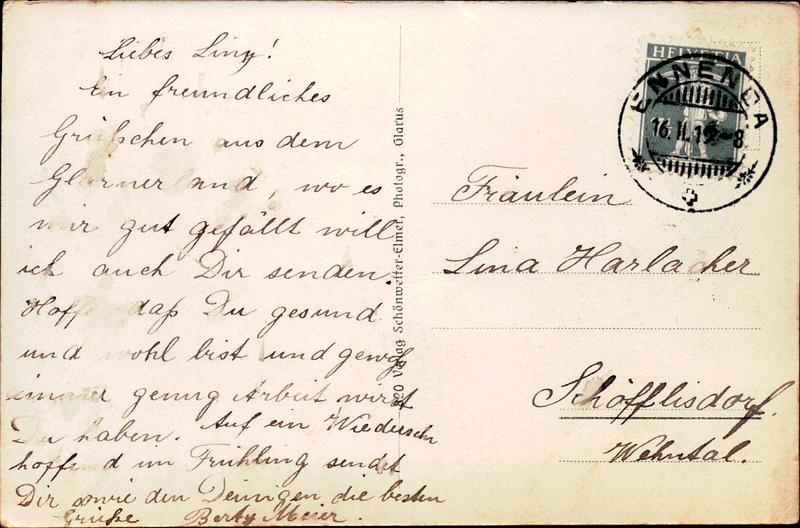 Liebes Liny!
Ein freundliches
Grüßchen aus dem
Glarnerland, wo es
mir gut gefällt will
ich auch Dir senden.
Hoffe daß Du gesund
und wohl bist und
immer genug Arbeit wirst
Du haben. Auf ein Wiedersehn
hoffend im Frühling sendet
Dir sowie den Deinigen die besten
Grüße Berty Meier.
820 Verlag Schönwetter-Elmer, Photogr., Glarus
HELVETIA
ENNENDA
16.II.
8
Fräulein
Lina Harlacher
Schöfflisdorf.
Wehntal.